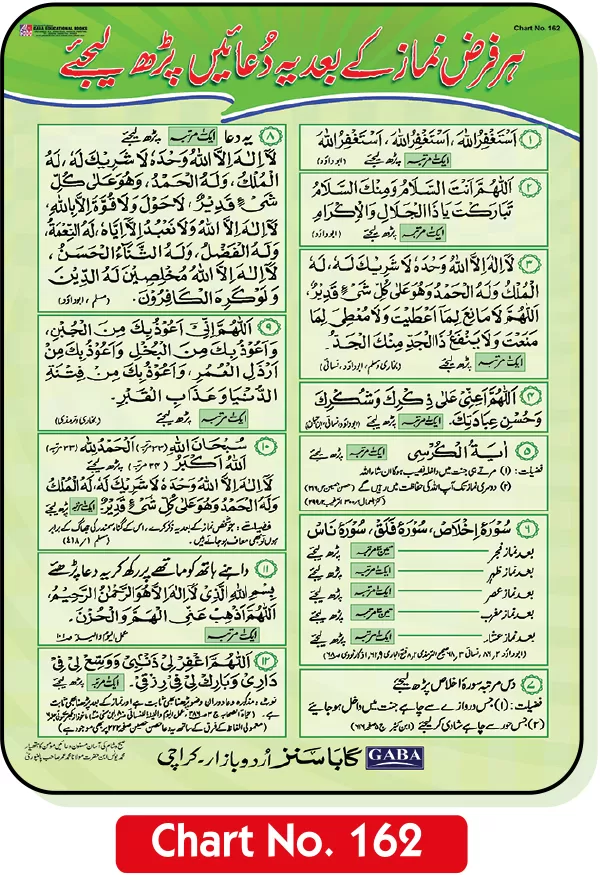 GABA EDUCATIONAL BOOKS
Chart No. 162
ہر فرض نماز کے بعد یہ دُعائیں پڑھ لیجئے
۱ اَسْتَغْفِرُاللہَ، اَسْتَغْفِرُاللہَ، اَسْتَغْفِرُاللہَ
ایک مرتبہ پڑھ لیجئے (ابوداؤد)
۲ اَللّٰهُمَّ اَنْتَ السَّلَامُ وَمِنْكَ السَّلَامُ
تَبَارَكْتَ يَا ذَا الْجَلَالِ وَالْاِكْرَامِ
ایک مرتبہ پڑھ لیجئے (ابوداؤد)
۳ لَآ اِلٰهَ اِلَّا اللّٰهُ وَحْدَهٗ لَا شَرِيْكَ لَهٗ، لَهُ
الْمُلْكُ وَلَهُ الْحَمْدُ وَهُوَ عَلٰى كُلِّ شَیْءٍ قَدِيْرٌ،
اَللّٰهُمَّ لَا مَانِعَ لِمَا اَعْطَيْتَ وَلَا مُعْطِيَ لِمَا
مَنَعْتَ وَلَا يَنْفَعُ ذَا الْجَدِّ مِنْكَ الْجَدُّ
ایک مرتبہ پڑھ لیجئے (بخاری و مسلم، ابوداؤد، نسائی)
۴ اَللّٰهُمَّ اَعِنِّيْ عَلٰى ذِكْرِكَ وَشُكْرِكَ
وَحُسْنِ عِبَادَتِكَ۔ ایک مرتبہ پڑھ لیجئے
۵ اٰيَةُ الْكُرْسِى ایک مرتبہ پڑھ لیجئے
فضیلت: (۱) مرتے ہی جنت میں داخلہ نصیب ہوگا ان شاءاللہ
(۲) دوسری نماز تک آپ اللہ کی حفاظت میں رہیں گے
۶ سُوْرَةُ اِخْلَاصْ، سُوْرَةُ فَلَقْ، سُوْرَةُ نَاسْ
بعد نماز فجر تین مرتبہ پڑھ لیجئے
بعد نماز ظہر ایک مرتبہ پڑھ لیجئے
بعد نماز عصر ایک مرتبہ پڑھ لیجئے
بعد نماز مغرب تین مرتبہ پڑھ لیجئے
بعد نماز عشاء ایک مرتبہ پڑھ لیجئے
۷ دس مرتبہ سورۂ اخلاص پڑھ لیجئے
فضیلت: (۱) جس دروازے سے چاہے جنت میں داخل ہو جائیے
(۲) جس حور سے چاہے شادی کر لیجئے
۸ یہ دعا ایک مرتبہ پڑھ لیجئے
لَآ اِلٰهَ اِلَّا اللّٰهُ وَحْدَهٗ لَا شَرِيْكَ لَهٗ، لَهُ
الْمُلْكُ، وَلَهُ الْحَمْدُ، وَهُوَ عَلٰى كُلِّ
شَیْءٍ قَدِيْرٌ، لَا حَوْلَ وَلَا قُوَّةَ اِلَّا بِاللّٰهِ،
لَآ اِلٰهَ اِلَّا اللّٰهُ وَلَا نَعْبُدُ اِلَّا اِيَّاهُ، لَهُ النِّعْمَةُ،
وَلَهُ الْفَضْلُ، وَلَهُ الثَّنَاءُ الْحَسَنُ،
لَآ اِلٰهَ اِلَّا اللّٰهُ مُخْلِصِيْنَ لَهُ الدِّيْنَ
وَلَوْ كَرِهَ الْكَافِرُوْنَ۔ (مسلم، ابوداؤد)
۹ اَللّٰهُمَّ اِنِّيْ اَعُوْذُ بِكَ مِنَ الْجُبْنِ،
وَاَعُوْذُ بِكَ مِنَ الْبُخْلِ وَاَعُوْذُ بِكَ مِنْ
اَرْذَلِ الْعُمُرِ، وَاَعُوْذُ بِكَ مِنْ فِتْنَةِ
الدُّنْيَا وَعَذَابِ الْقَبْرِ۔
ایک مرتبہ پڑھ لیجئے (بخاری و ترمذی)
۱۰ سُبْحَانَ اللّٰهِ (۳۳ مرتبہ) اَلْحَمْدُ لِلّٰهِ (۳۳ مرتبہ)
اَللّٰهُ اَكْبَرُ (۳۳ مرتبہ) پڑھ لیجئے
لَآ اِلٰهَ اِلَّا اللّٰهُ وَحْدَهٗ لَا شَرِيْكَ لَهٗ، لَهُ الْمُلْكُ
وَلَهُ الْحَمْدُ وَهُوَ عَلٰى كُلِّ شَیْءٍ قَدِيْرٌ ایک مرتبہ پڑھ لیجئے
فضیلت: جو شخص نماز کے بعد یہ ذکر کرے، اس کے گناہ سمندر کی جھاگ کے برابر
ہوں تو بھی معاف ہو جاتے ہیں۔ (مسلم ۴۱۸/۱)
۱۱ داہنے ہاتھ کو ماتھے پر رکھ کر یہ دعا پڑھئے
بِسْمِ اللّٰهِ الَّذِيْ لَآ اِلٰهَ اِلَّا هُوَ الرَّحْمٰنُ الرَّحِيْمُ،
اَللّٰهُمَّ اَذْهِبْ عَنِّي الْهَمَّ وَالْحُزْنَ۔
ایک مرتبہ پڑھ لیجئے
۱۲ اَللّٰهُمَّ اغْفِرْ لِيْ ذَنْبِيْ وَوَسِّعْ لِيْ فِيْ
دَارِيْ وَبَارِكْ لِيْ فِيْ رِزْقِيْ۔ ایک مرتبہ پڑھ لیجئے
GABA گابا سنز اُردو بازار۔ کراچی
Chart No. 162